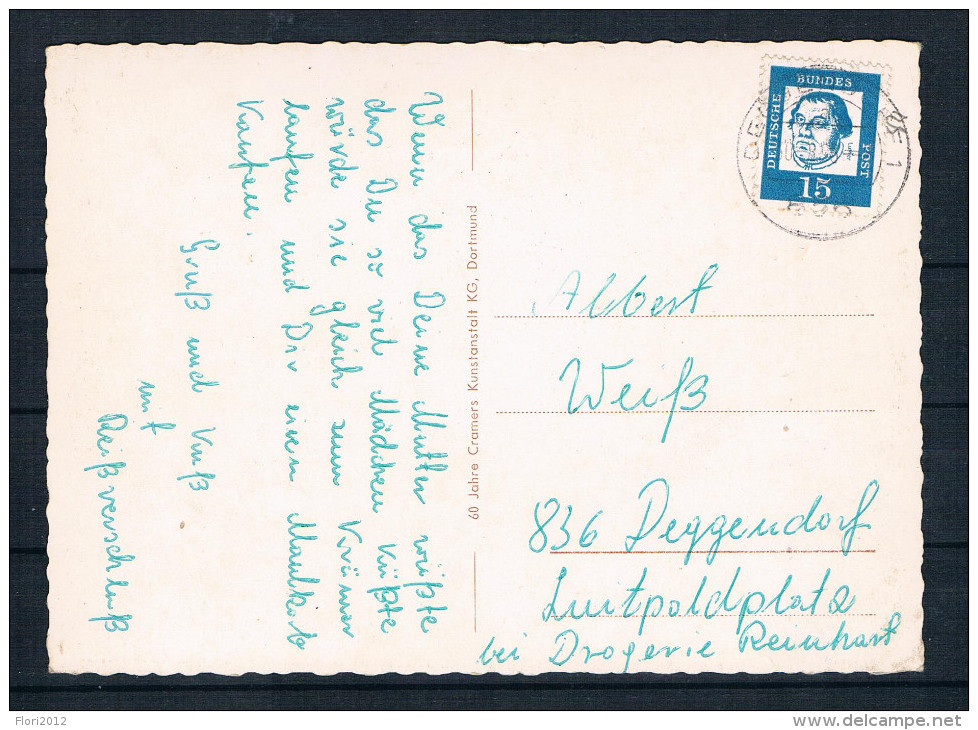 Wenn das Deine Mutter wüßte
das Du so viel Mädchen küßte
würde sie gleich zum Krämer
laufen und Dir einen Maulkorb
Kaufen.
Gruß und Kuß
mit
Reißverschluß
60 Jahre Cramers Kunstanstalt KG, Dortmund
DEUTSCHE
BUNDES
POST
15
DEGGENDORF 1
Albert
Weiß
836 Deggendorf
Luitpoldplatz
bei Drogerie Reinhart
Flori2012
www.delcampe.net